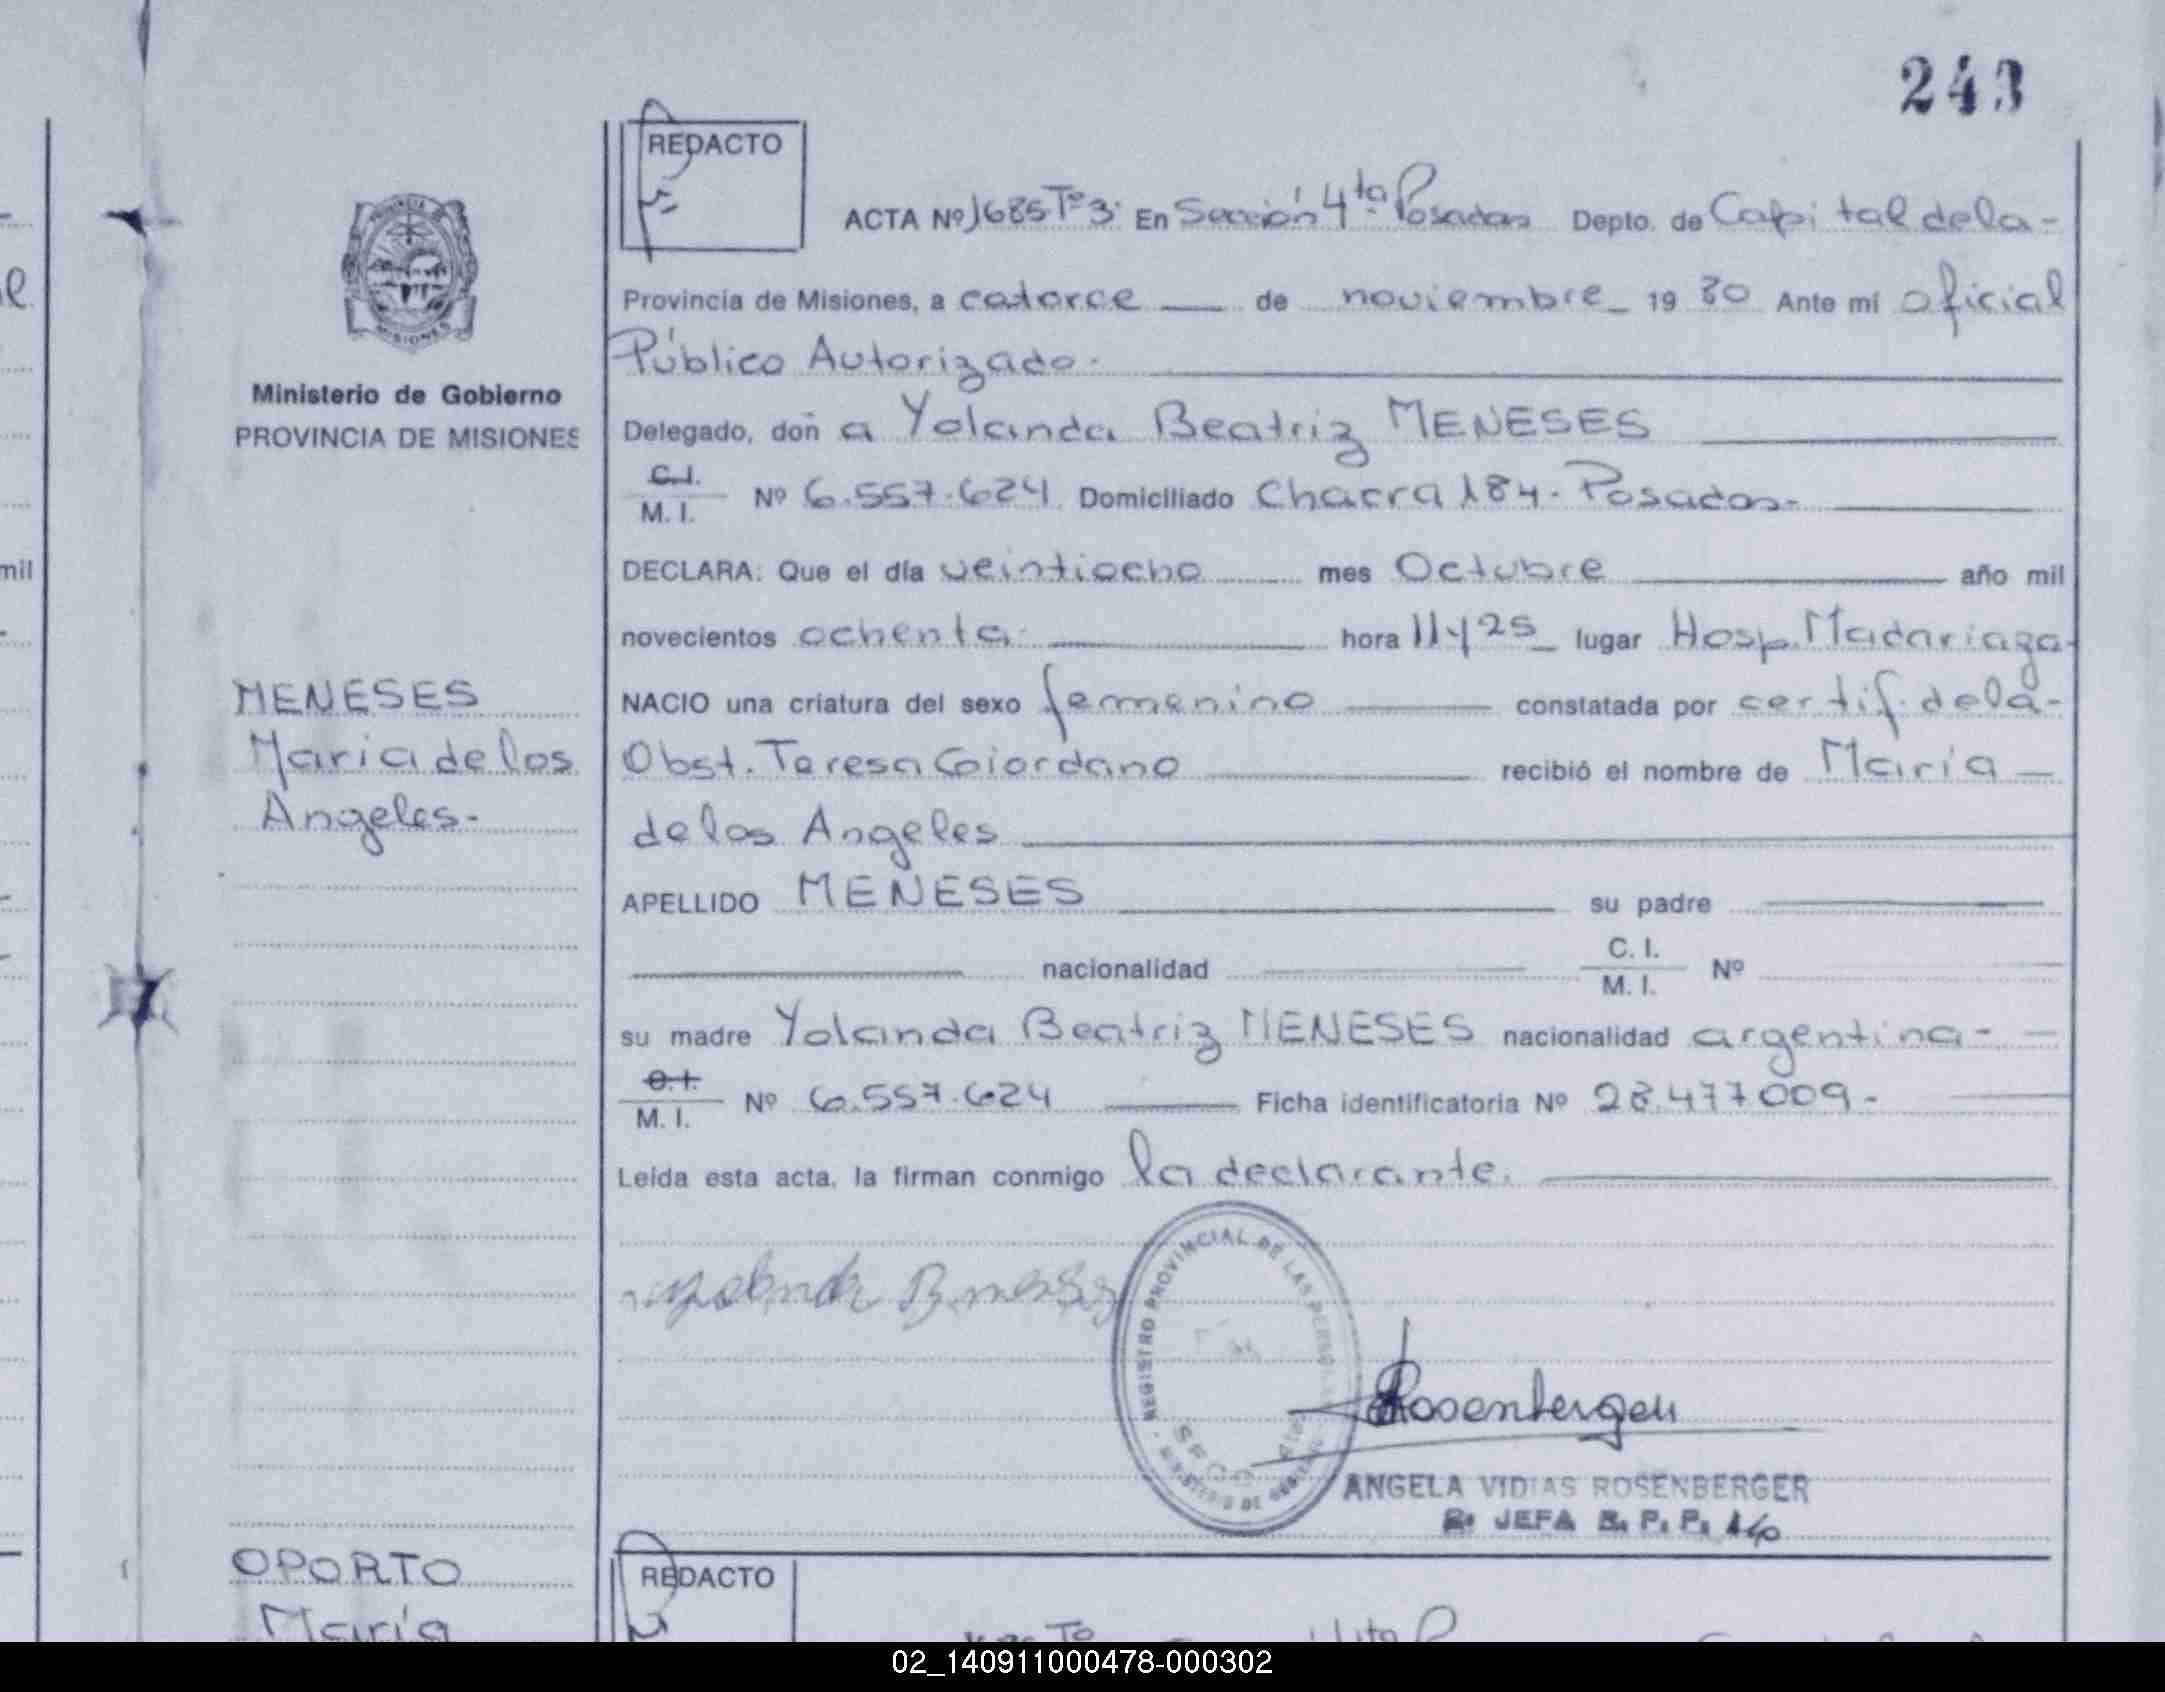 243
REDACTO
ACTA Nº 1685 Tº 3. En Sección 4ta Posadas Depto. de Capital de la-
Provincia de Misiones, a catorce de noviembre 19 80 Ante mí oficial
Público Autorizado.
Delegado, doñ a Yolanda Beatriz MENESES
C.I.
M. I. Nº 6.557.624 Domiciliado Chacra 184. Posadas-
DECLARA: Que el día veintiocho mes Octubre año mil
novecientos ochenta hora 11 y 25 lugar Hosp. Madariaga-
NACIO una criatura del sexo femenino constatada por certif. de la-
Obst. Teresa Giordano recibió el nombre de María
de los Angeles
APELLIDO MENESES su padre
nacionalidad C. I.
M. I. Nº
su madre Yolanda Beatriz MENESES nacionalidad argentina-
C.I.
M. I. Nº 6.557.624 Ficha identificatoria Nº 28.477009-
Leída esta acta, la firman conmigo la declarante.
REGISTRO PROVINCIAL DE LAS PERSONAS
MINISTERIO DE GOBIERNO
Rosenberger
ANGELA VIDIAS ROSENBERGER
JEFA
REDACTO
PROVINCIA DE
MISIONES
Ministerio de Gobierno
PROVINCIA DE MISIONES
MENESES
Maria de los
Angeles-
OPORTO
María
mil
02_140911000478-000302